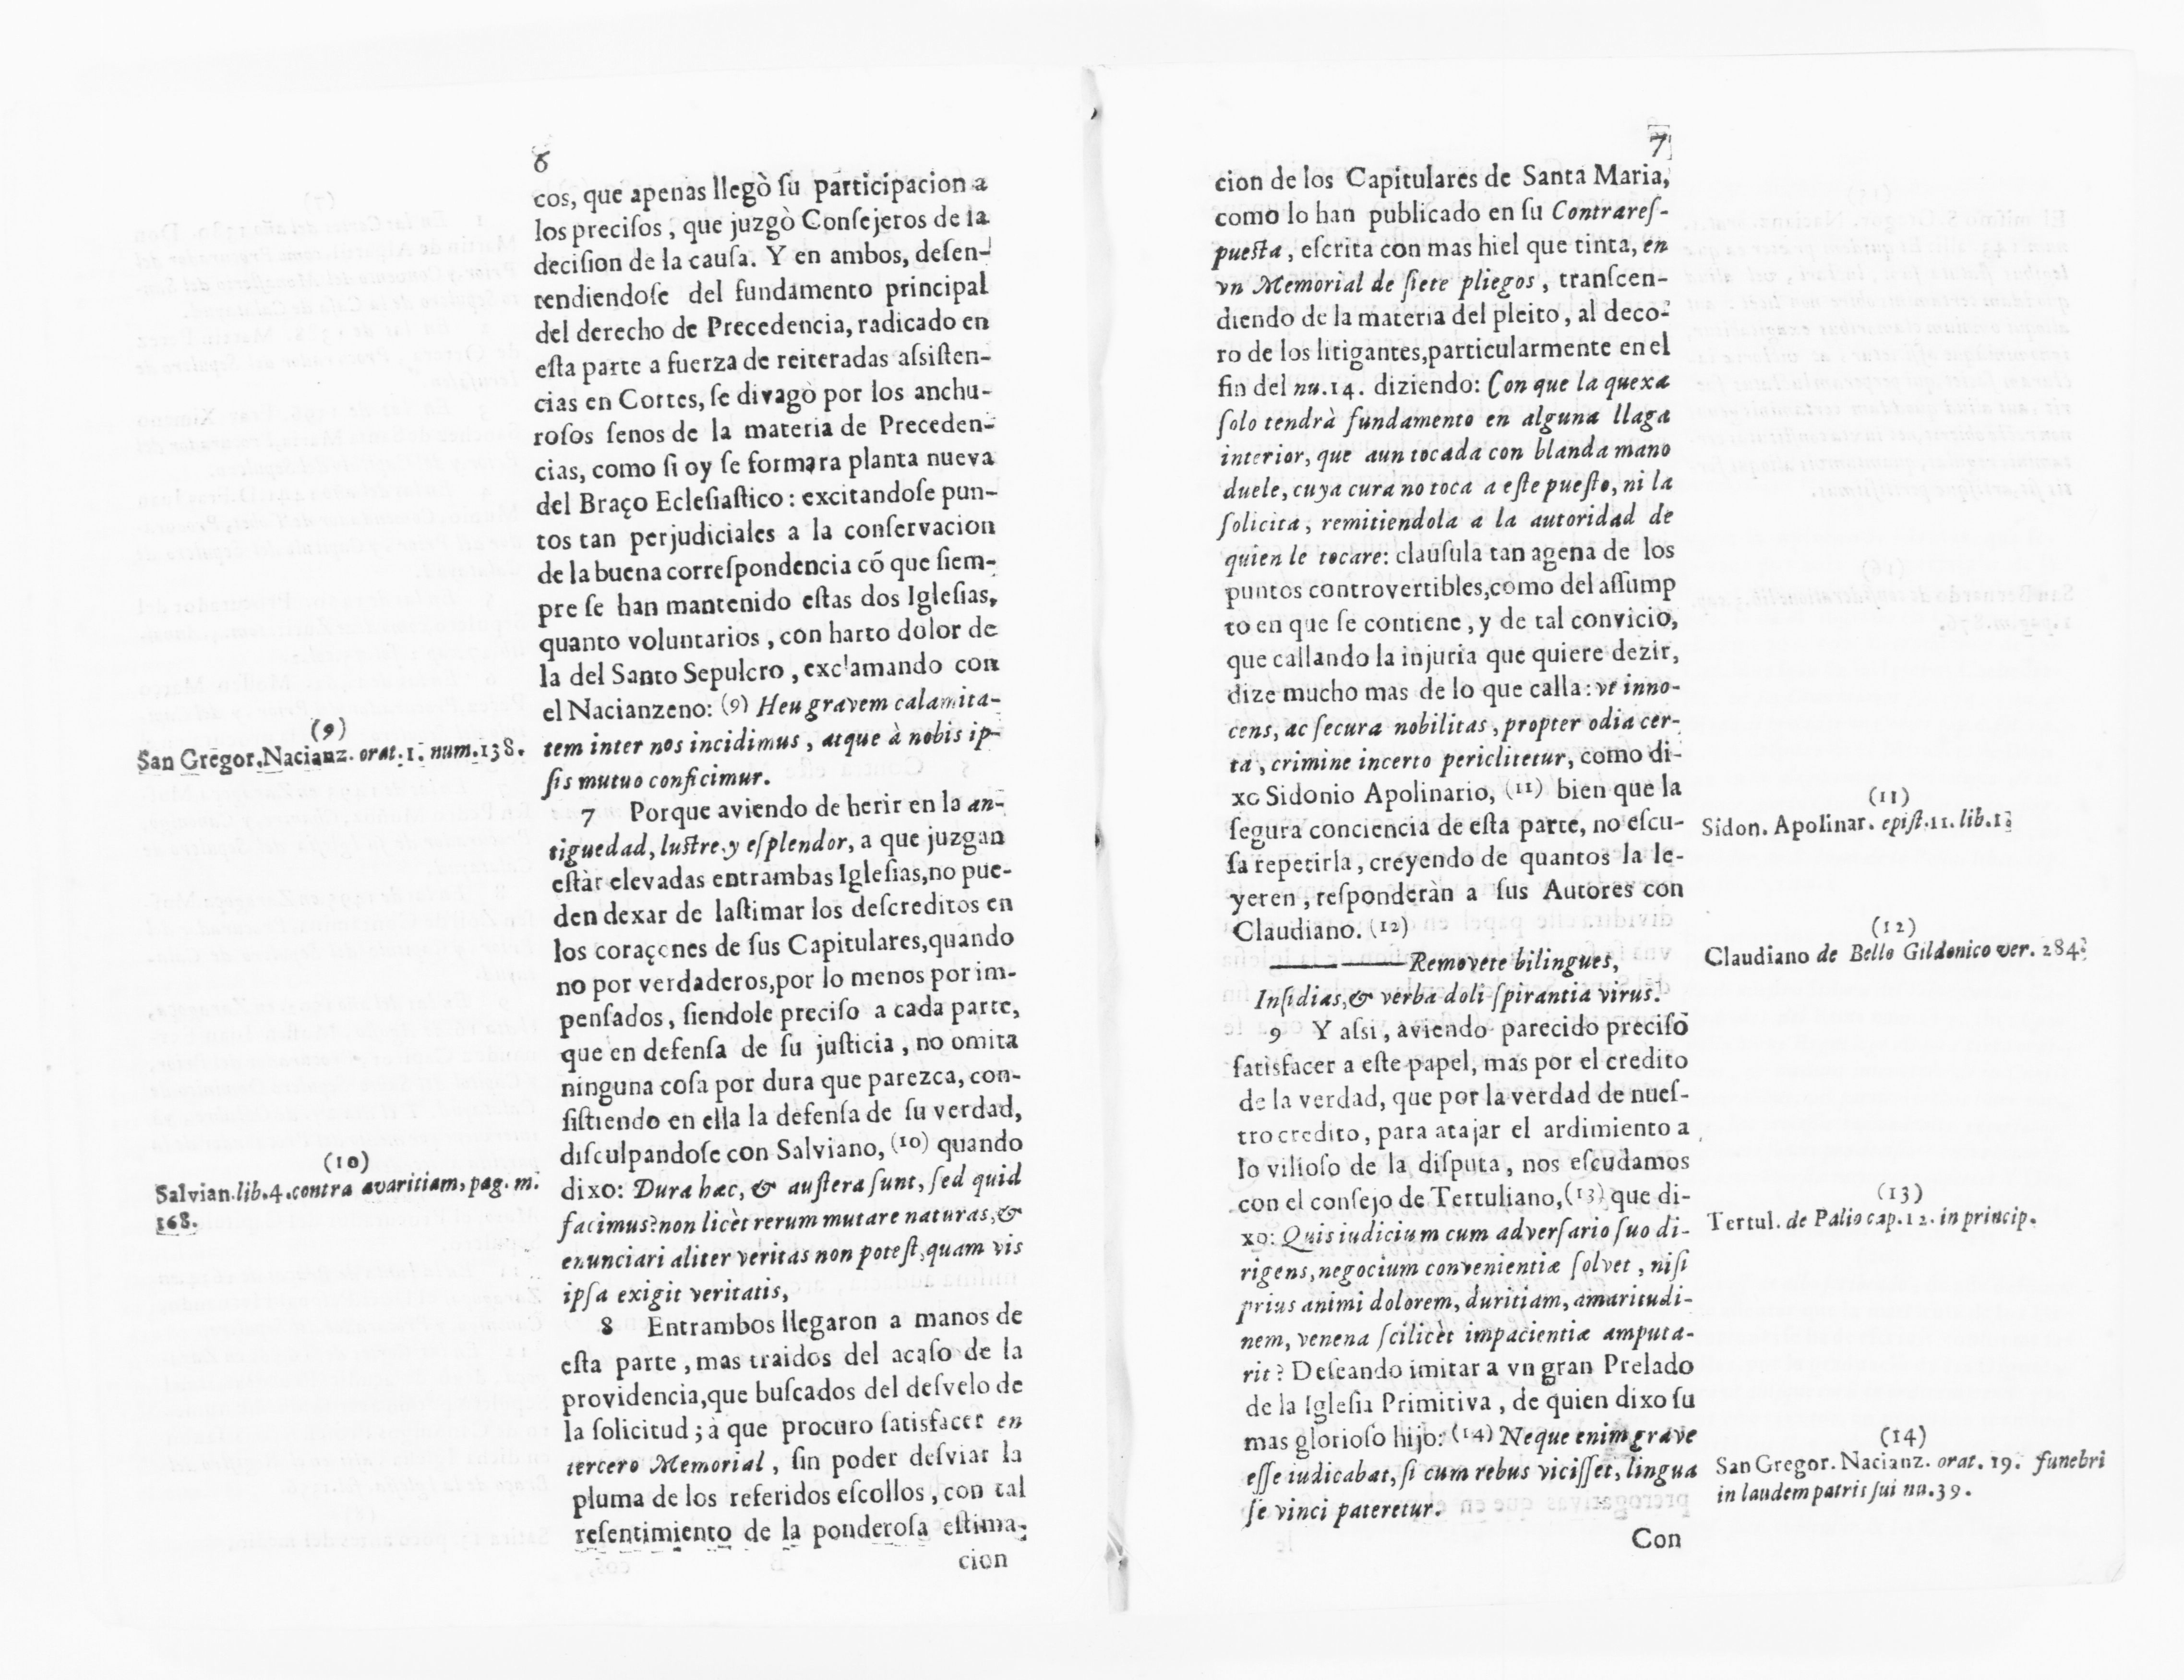 6
cos, que apenas llegò ſu participacion a
los preciſos, que juzgò Conſejeros de la
deciſion de la cauſa. Y en ambos, deſen-
tendiendoſe del fundamento principal
del derecho de Precedencia, radicado en
eſta parte a fuerza de reiteradas aſsiſten-
cias en Cortes, ſe divagò por los anchu-
roſos ſenos de la materia de Preceden-
cias, como ſi oy ſe formara planta nueva
del Braço Ecleſiaſtico: excitandoſe pun-
tos tan perjudiciales a la conſervacion
de la buena correſpondencia cõ que ſiem-
pre ſe han mantenido eſtas dos Igleſias,
quanto voluntarios, con harto dolor de
la del Santo Sepulcro, exclamando con
el Nacianzeno: (9) Heu gravem calamita-
tem inter nos incidimus, atque à nobis ip-
ſis mutuo conficimur.
(9)
San Gregor. Nacianz. orat. 1. num. 138.
7 Porque aviendo de herir en la an-
tiguedad, luſtre, y eſplendor, a que juzgan
eſtàr elevadas entrambas Igleſias, no pue-
den dexar de laſtimar los deſcreditos en
los coraçenes de ſus Capitulares, quando
no por verdaderos, por lo menos por im-
penſados, ſiendole preciſo a cada parte,
que en defenſa de ſu juſticia, no omita
ninguna coſa por dura que parezca, con-
ſiſtiendo en ella la defenſa de ſu verdad,
diſculpandoſe con Salviano, (10) quando
dixo: Dura hæc, & auſtera ſunt, ſed quid
facimus? non licèt rerum mutare naturas, &
enunciari aliter veritas non poteſt, quam vis
ipſa exigit veritatis,
(10)
Salvian. lib. 4. contra avaritiam, pag. m.
168.
8 Entrambos llegaron a manos de
eſta parte, mas traidos del acaſo de la
providencia, que buſcados del deſvelo de
la ſolicitud; à que procuro ſatisfacer en
tercero Memorial, ſin poder deſviar la
pluma de los referidos eſcollos, con tal
reſentimiento de la ponderoſa eſtima-
cion
7
cion de los Capitulares de Santa Maria,
como lo han publicado en ſu Contrareſ-
pueſta, eſcrita con mas hiel que tinta, en
vn Memorial de ſiete pliegos, tranſcen-
diendo de la materia del pleito, al deco-
ro de los litigantes, particularmente en el
fin del nu. 14. diziendo: Con que la quexa
ſolo tendrà fundamento en alguna llaga
interior, que aun tocada con blanda mano
duele, cuya cura no toca a eſte pueſto, ni la
ſolicita, remitiendola a la autoridad de
quien le tocare: clauſula tan agena de los
puntos controvertibles, como del aſſump
to en que ſe contiene, y de tal convicio,
que callando la injuria que quiere dezir,
dize mucho mas de lo que calla: vt inno-
cens, ac ſecura nobilitas, propter odia cer-
ta, crimine incerto periclitetur, como di-
xo Sidonio Apolinario, (11) bien que la
ſegura conciencia de eſta parte, no eſcu-
ſa repetirla, creyendo de quantos la le-
yeren, reſponderàn a ſus Autores con
Claudiano. (12)
Removete bilingues,
Inſidias, & verba doli ſpirantia virus.
(11)
Sidon. Apolinar. epiſt. 11. lib. 1.
(12)
Claudiano de Bello Gildonico ver. 284.
9 Y aſsi, aviendo parecido preciſo
ſatisfacer a eſte papel, mas por el credito
de la verdad, que por la verdad de nueſ-
tro credito, para atajar el ardimiento a
lo vilioſo de la diſputa, nos eſcudamos
con el conſejo de Tertuliano, (13) que di-
xo: Quis iudicium cum adverſario ſuo di-
rigens, negocium convenientiæ ſolvet, niſi
prius animi dolorem, duritiam, amaritudi-
nem, venena ſcilicèt impacientiæ amputa-
rit? Deſeando imitar a vn gran Prelado
de la Igleſia Primitiva, de quien dixo ſu
mas glorioſo hijo: (14) Neque enim grave
eſſe iudicabat, ſi cum rebus viciſſet, lingua
ſe vinci pateretur.
(13)
Tertul. de Palio cap. 12. in princip.
(14)
San Gregor. Nacianz. orat. 19. funebri
in laudem patris ſui nu. 39.
Con